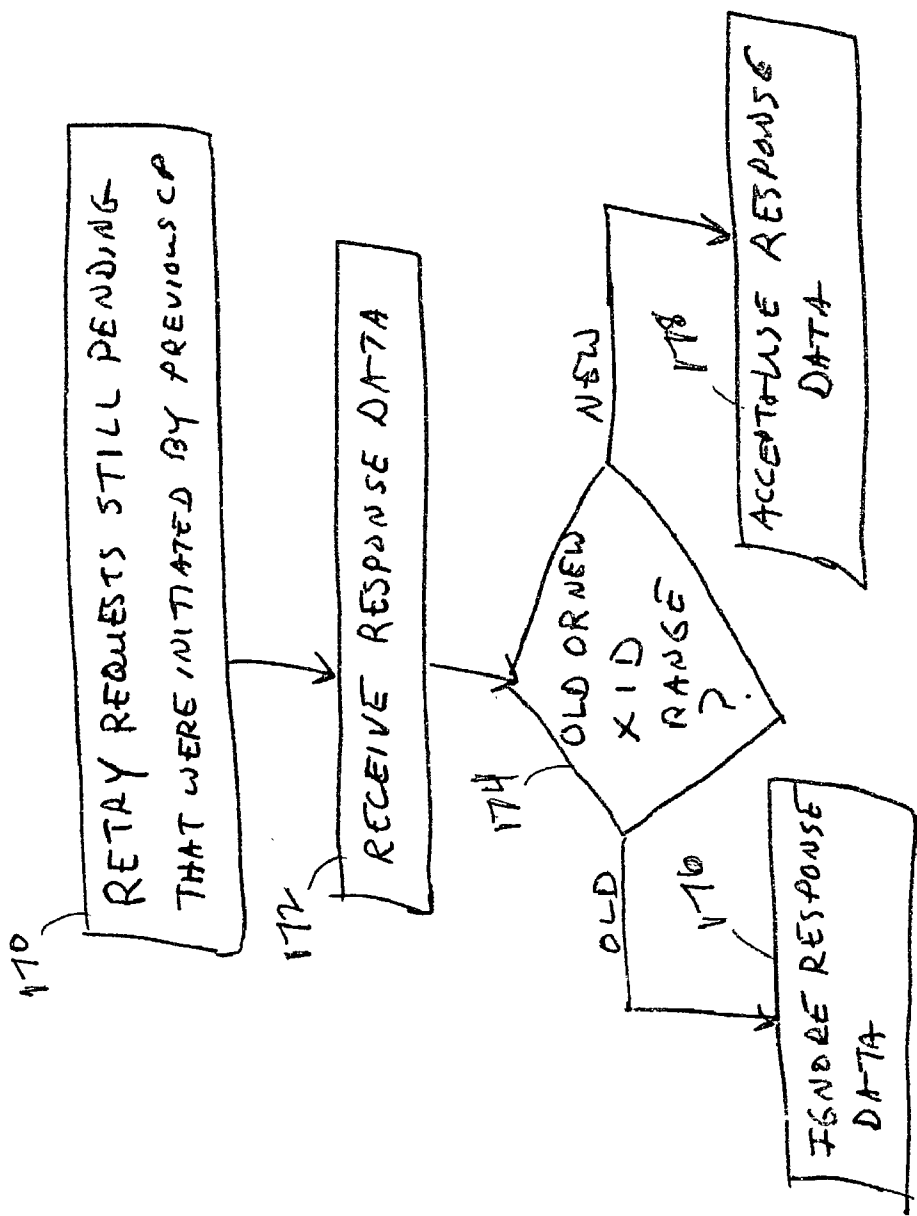 170
RETRY REQUESTS STILL PENDING
THAT WERE INITIATED BY PREVIOUS CP
172
RECEIVE RESPONSE DATA
174
OLD OR NEW
XID
RANGE
?
OLD
NEW
176
178
IGNORE RESPONSE
DATA
ACCEPT/USE RESPONSE
DATA